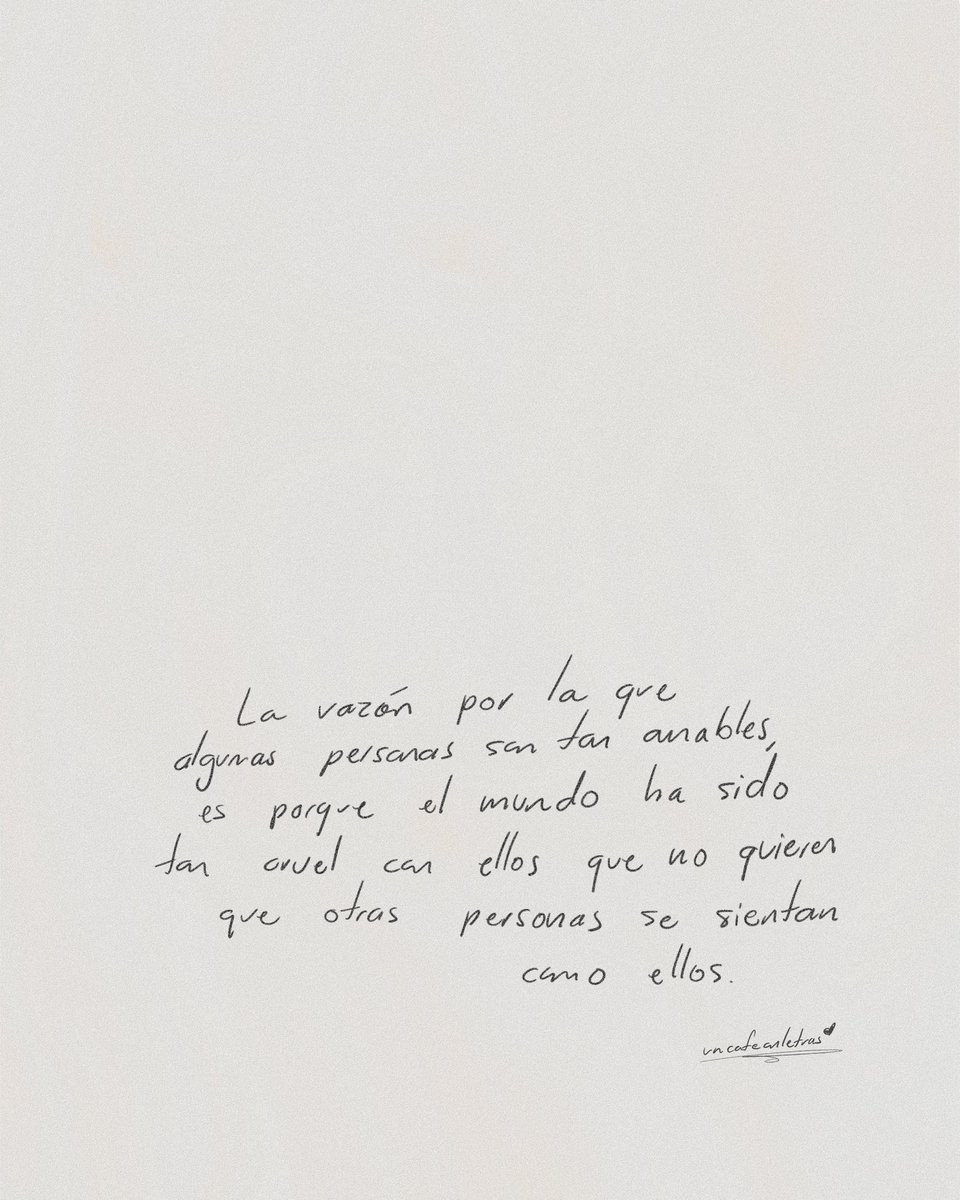 La razón por la que
algunas personas son tan amables,
es porque el mundo ha sido
tan cruel con ellos que no quieren
que otras personas se sientan
como ellos.
uncafeconletras